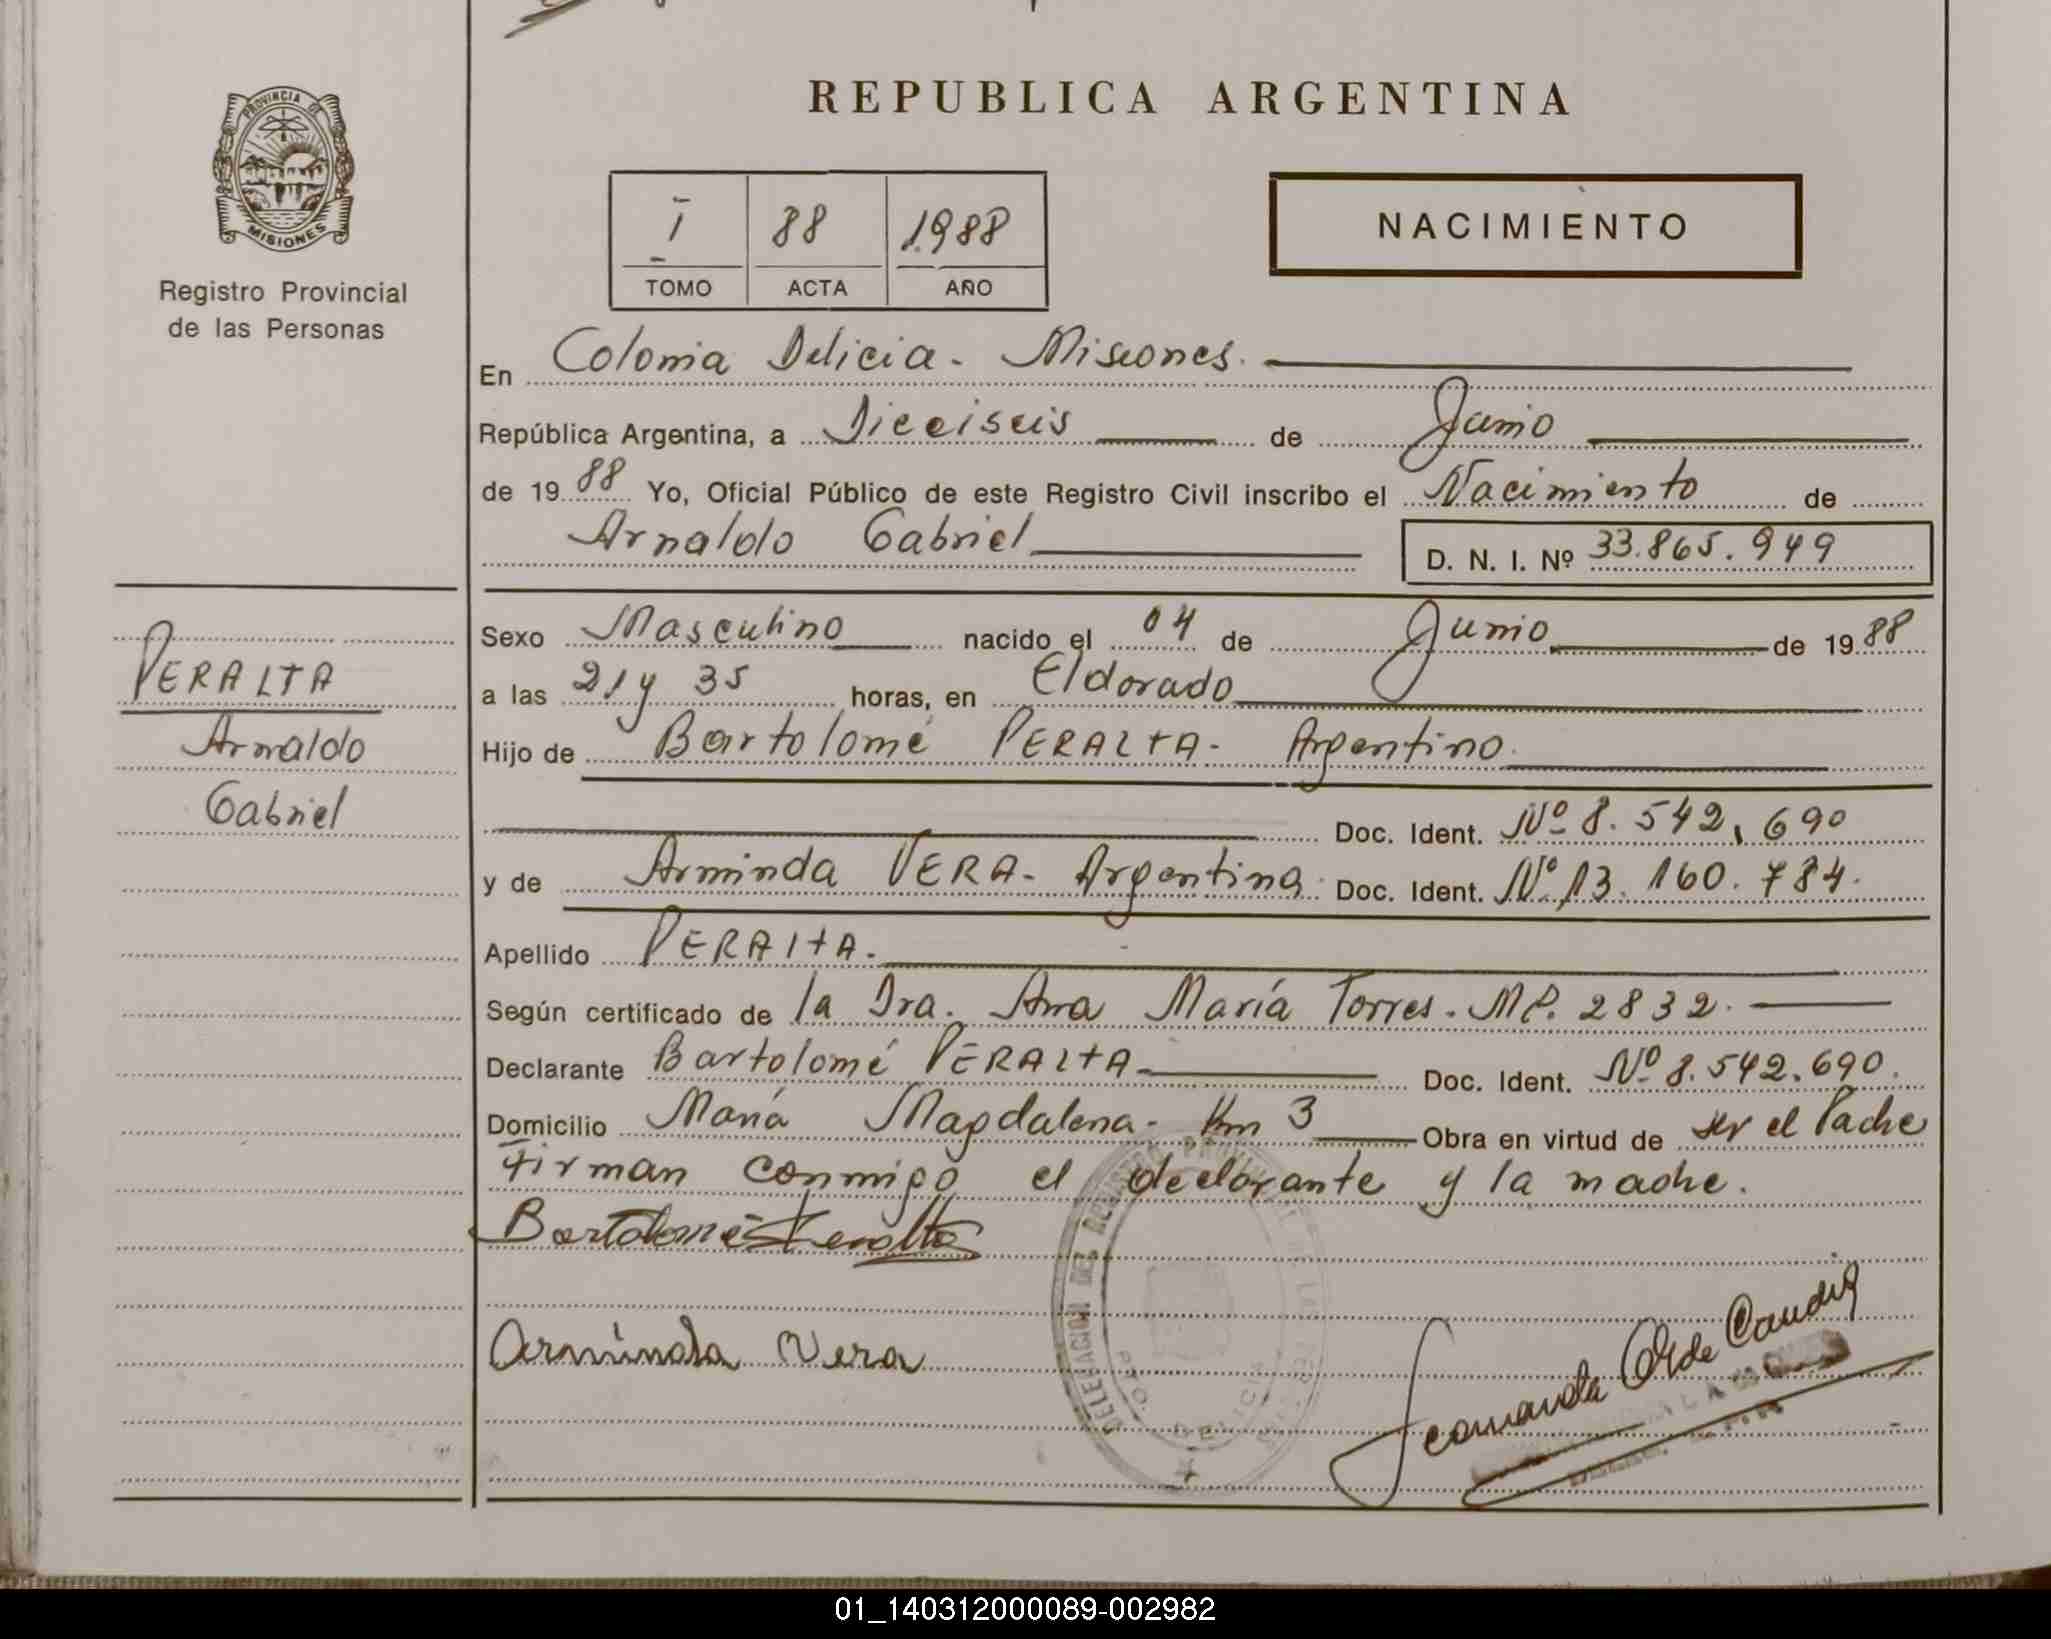 PROVINCIA DE
MISIONES
Registro Provincial
de las Personas
REPUBLICA ARGENTINA
I 88 1988
TOMO ACTA AÑO
NACIMIENTO
En Colonia Delicia - Misiones.
República Argentina, a Dieciseis de Junio
de 19 88 Yo, Oficial Público de este Registro Civil inscribo el Nacimiento de
Arnaldo Gabriel D. N. I. Nº 33.865.949
PERALTA
Arnaldo
Gabriel
Sexo Masculino nacido el 04 de Junio de 19 88
a las 21 y 35 horas, en Eldorado
Hijo de Bartolomé PERALTA - Argentino.
Doc. Ident. Nº 8.542.690
y de Arminda VERA - Argentina. Doc. Ident. Nº 13.160.784.
Apellido PERALTA.
Según certificado de la Dra. Ana María Torres. MP. 2832.
Declarante Bartolomé PERALTA Doc. Ident. Nº 8.542.690.
Domicilio María Magdalena - Km 3 Obra en virtud de ser el Padre
Firman conmigo el declarante y la madre.
Bartolomé Peralta
Arminda Vera
DELEGACION DEL REGISTRO PROVINCIAL DE LAS PERSONAS
PTO. DELICIA
01_140312000089-002982